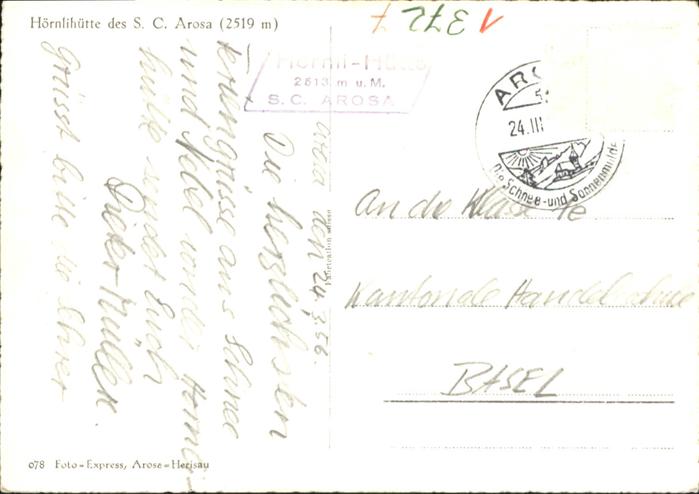 Hörnlihütte des S. C. Arosa (2519 m)
1 372 7
Hörnli-Hütte
2513 m u. M.
S. C. AROSA
ARO
24.III
Die Schnee- und Sonnenmulde
Arosa den 24.3.56.
Die herzlichsten
Feriengrüsse aus Schnee
und Nebel von der Hörnli-
hütte sendet Euch
Dieter Müller.
Grüsst bitte die Lehrer
An die Klasse 1e
Kantonale Handelsschule
BASEL
Fabrication suisse
078 Foto-Express, Arosa-Herisau